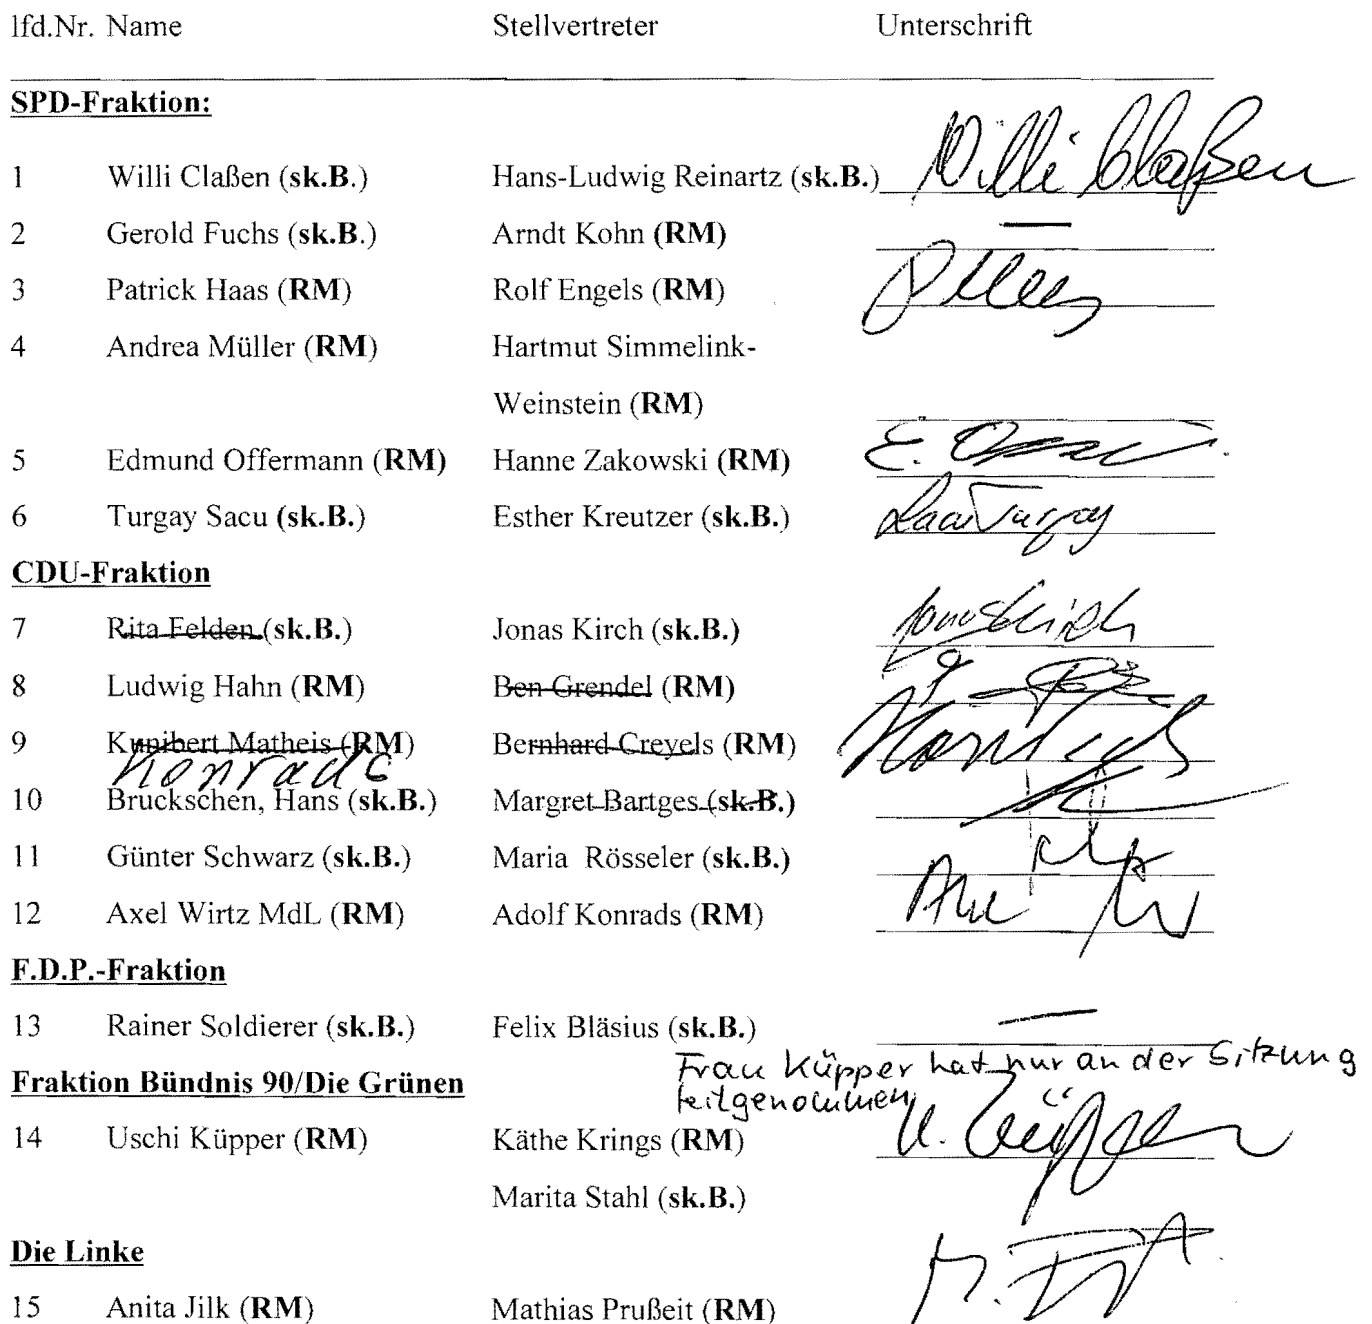 lfd.Nr. Name Stellvertreter Unterschrift
SPD-Fraktion:
1 Willi Claßen (sk.B.) Hans-Ludwig Reinartz (sk.B.) Willi Claßen
2 Gerold Fuchs (sk.B.) Arndt Kohn (RM) —
3 Patrick Haas (RM) Rolf Engels (RM)
4 Andrea Müller (RM) Hartmut Simmelink-
Weinstein (RM)
5 Edmund Offermann (RM) Hanne Zakowski (RM)
6 Turgay Sacu (sk.B.) Esther Kreutzer (sk.B.) Sacu Turgay
CDU-Fraktion
7 Rita Felden (sk.B.) Jonas Kirch (sk.B.) Jonas Kirch
8 Ludwig Hahn (RM) Ben Grendel (RM)
9 Kunibert Matheis (RM) Bernhard Creyels (RM) Konrads
Konrads
10 Bruckschen, Hans (sk.B.) Margret Bartges (sk.B.)
11 Günter Schwarz (sk.B.) Maria Rösseler (sk.B.)
12 Axel Wirtz MdL (RM) Adolf Konrads (RM)
F.D.P.-Fraktion
13 Rainer Soldierer (sk.B.) Felix Bläsius (sk.B.) —
Frau Küpper hat nur an der Sitzung
Fraktion Bündnis 90/Die Grünen teilgenommen
14 Uschi Küpper (RM) Käthe Krings (RM) U. Küpper
Marita Stahl (sk.B.)
Die Linke
15 Anita Jilk (RM) Mathias Prußeit (RM)